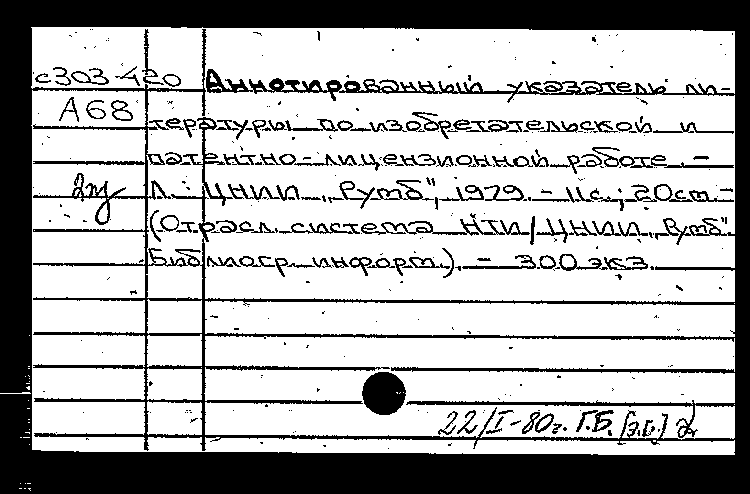 с303-420 Аннотированный указатель ли-
А68 тературы по изобретательской и
патентно-лицензионной работе. -
Л.: ЦНИИ „Румб", 1979. - 11с.; 20см. -
(Отрасл. система НТИ/ЦНИИ „Румб".
Библиогр. информ.). - 300 экз.
22/I-80г. Г.Б.